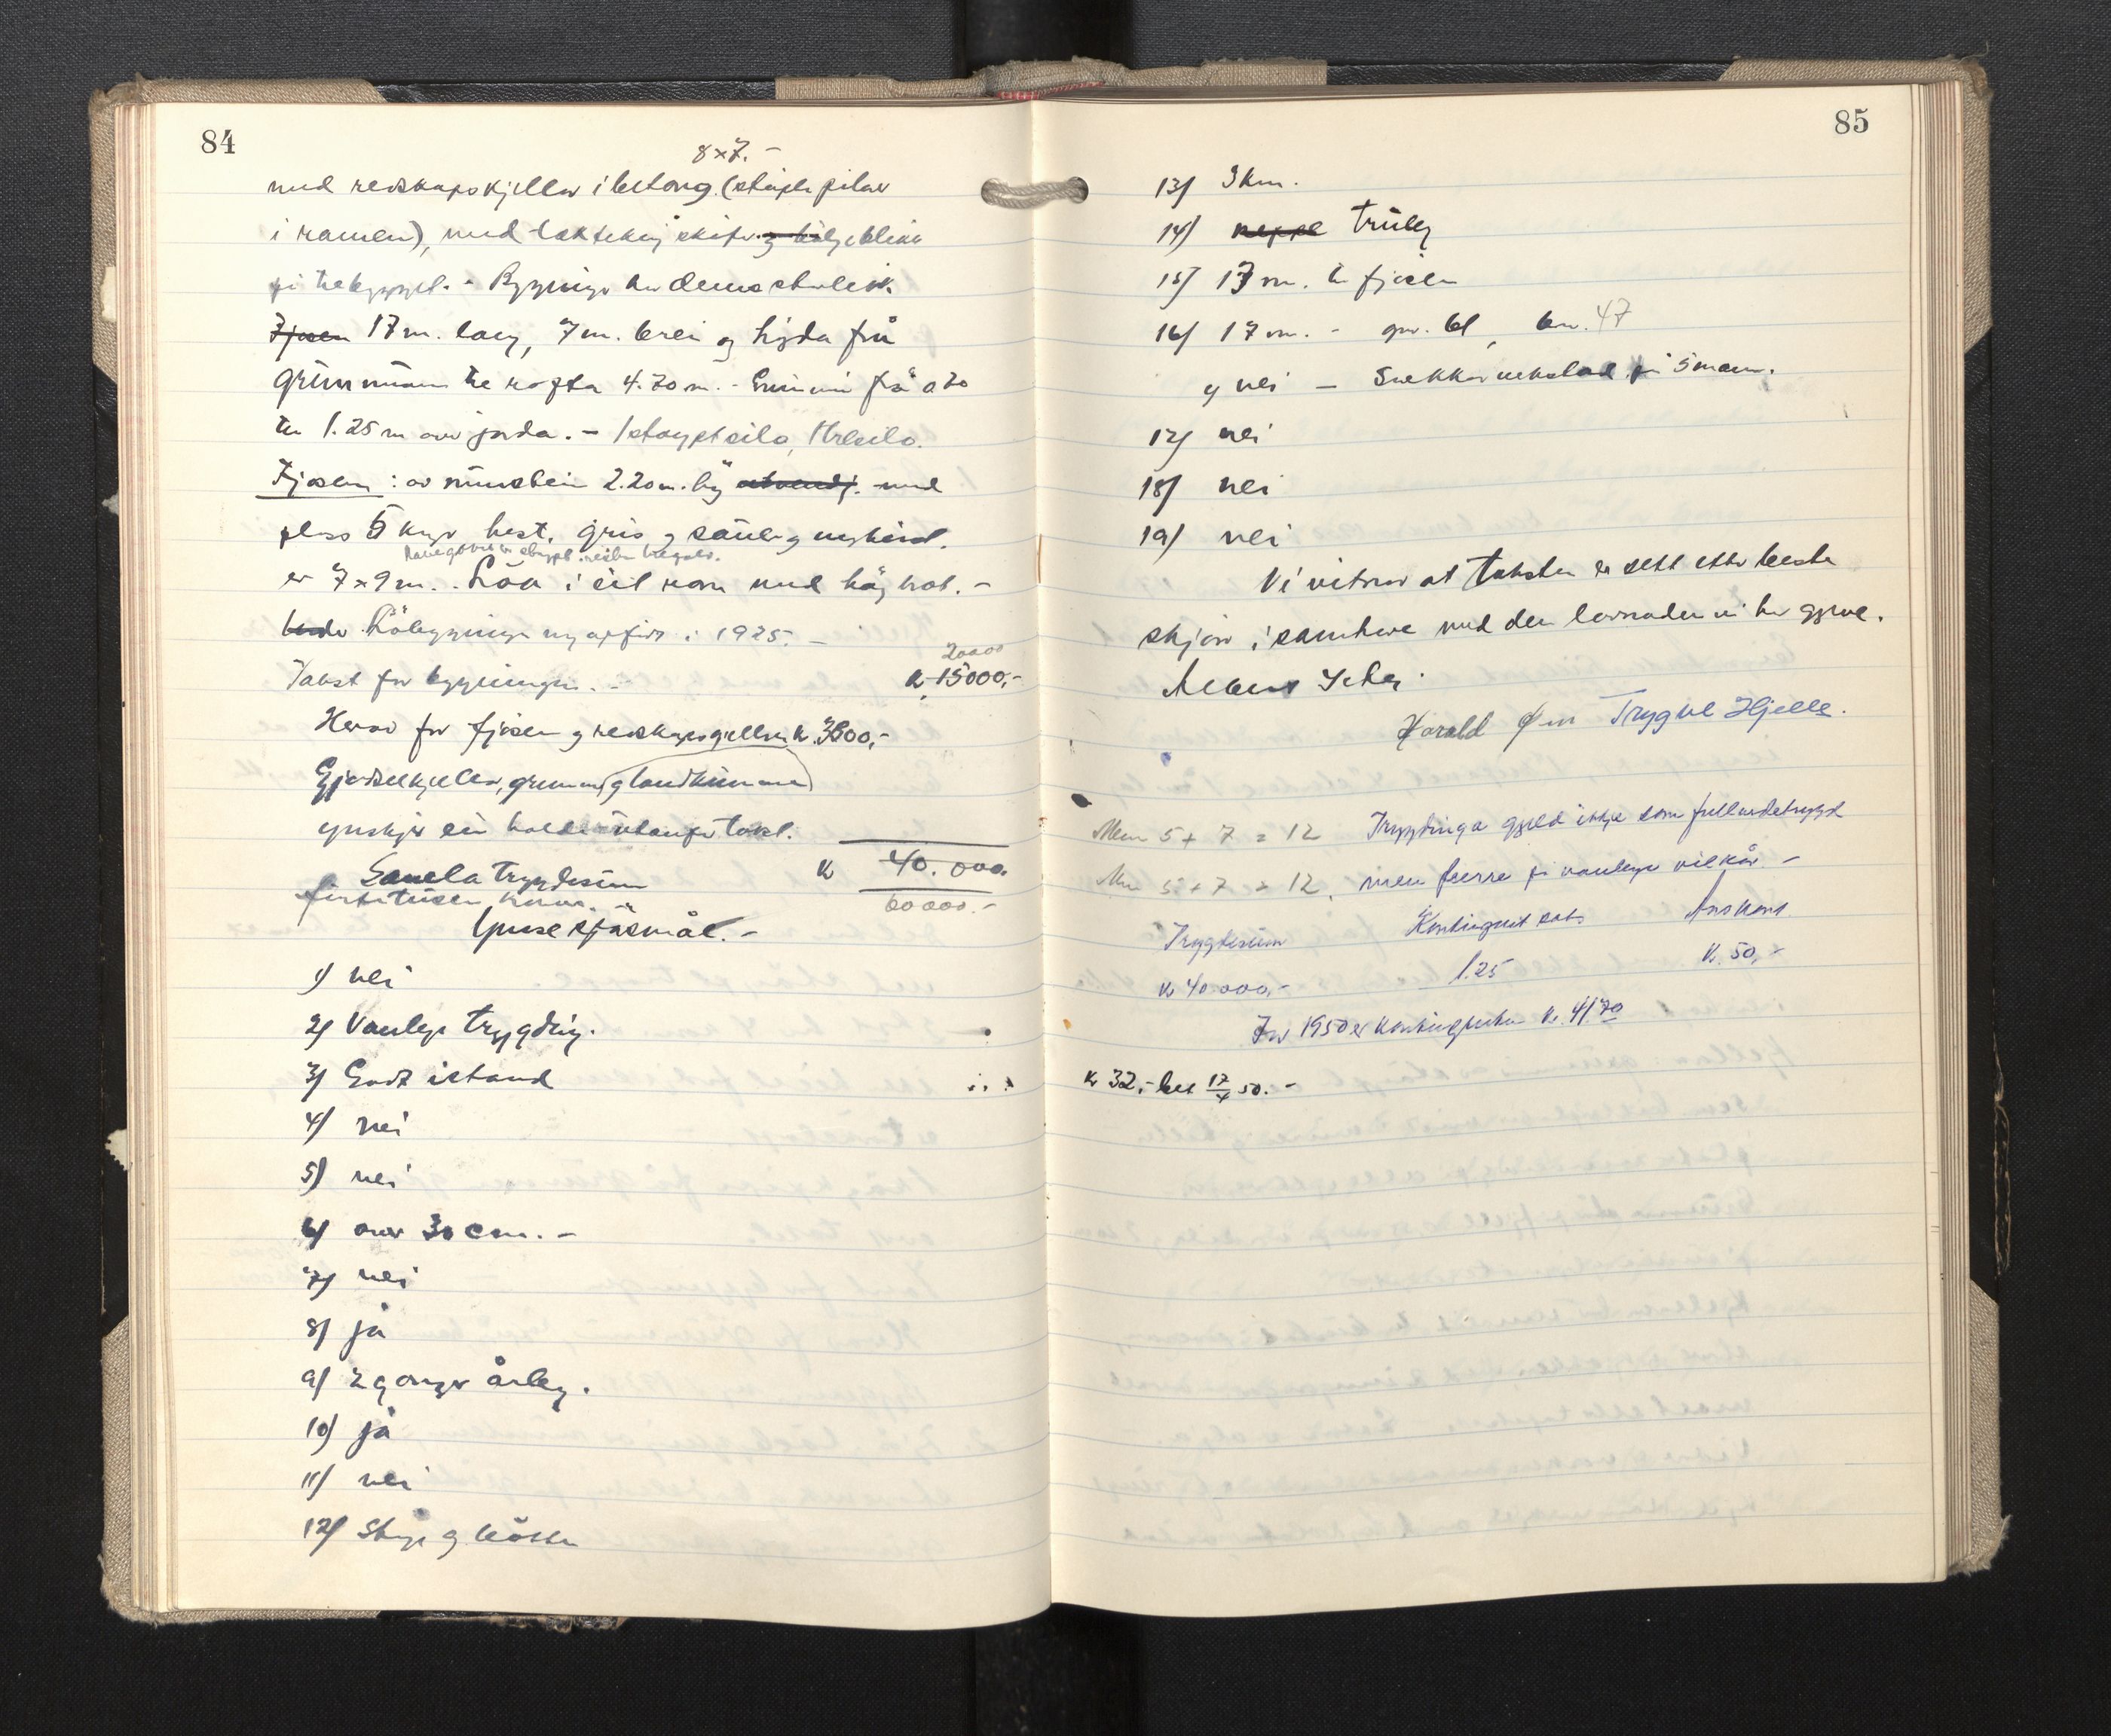 84
8x7. -
med reiskapskjellar i betong. (støypte pilar
i ramen), med taktekkj skifer og bølgeblikk
på tilbygget. - Bygningen har denne storleik.
Fjøsen 17 m. lang, 7 m. brei og høgda frå
grunnmuren til rafta 4.70 m. - Grunnmur frå 0 20
til 1.25 m over jorda. - 1 støypt silo, 1 tresilo.
Fjøsen: av murstein 2.20 m. høg utvendj. med
plass 5 kyr hest, gris, og sauer og ungkind.
støypt
er 7 x 9 m. . Løa i eit rom med høg
Løbygningen ny oppført i 1925. -
20000
Takst for bygningen. - kr. 15000,-
Herav for fjøsen og reiskapsgjellar kr. 3800,-
Gjødselkjellar, grunnmur og landkummen
ynskjer ein halde utanfor takst.
Samla trygdesum kr 40.000.
førtitusen kroner. - 60000.-
Ymse spåsmål. -
1) nei
2) Vanleg trygding.
3) God istand
4) nei
5) nei
6) over 30 cm. -
7) nei
8) ja
9) 2 gonger årleg.
10) ja
11) nei
12) Stige og bøtte
85
13) 3 km.
14) neppe truleg
15) 17 m. til fjøsen
16) 17 m. - gnr. 61, bnr. 47
og nei - Snekkarverkstad på 5 mann.
17) nei
18) nei
19) nei
Vi vitnar at taksten er sett etter beste
skjøn i samhøve med den lovnaden vi har gjeve.
Harald Øen Trygve Hjelle.
Men 5 + 7 = 12 Trygdinga gjeld ikkje som fullverdetrygd
Men 5 + 7 = 12. men fyrre på vanlege vilkår -
Trygdesum Kontingent sats Årskont
kr 40.000,- 1.25 kr. 50,-
For 1950 er kontingenten kr. 41.70
kr 32,- bet 17/4 50. -